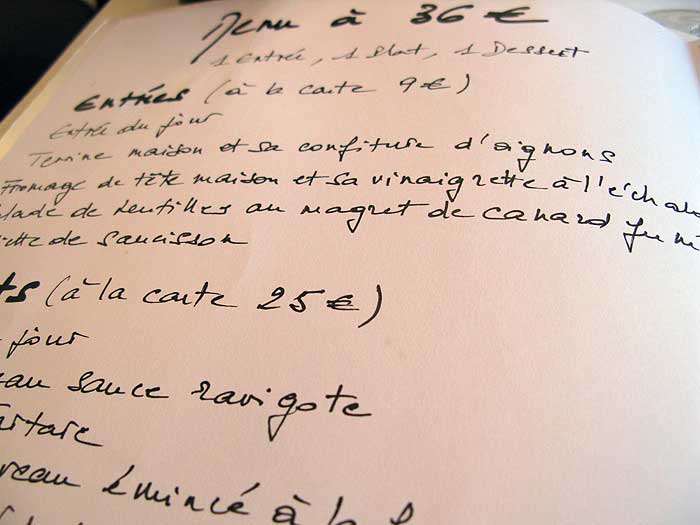 Menu à 36 €
1 Entrée, 1 Plat, 1 Dessert
Entrées (à la carte 9 €)
Entrée du jour
Terrine maison et sa confiture d'oignons
Fromage de tête maison et sa vinaigrette à l'écha
lade de Lentilles au magret de canard fumé
ette de saucisson
ts (à la carte 25 €)
jour
eau sauce ravigote
artare
reau émincé à la